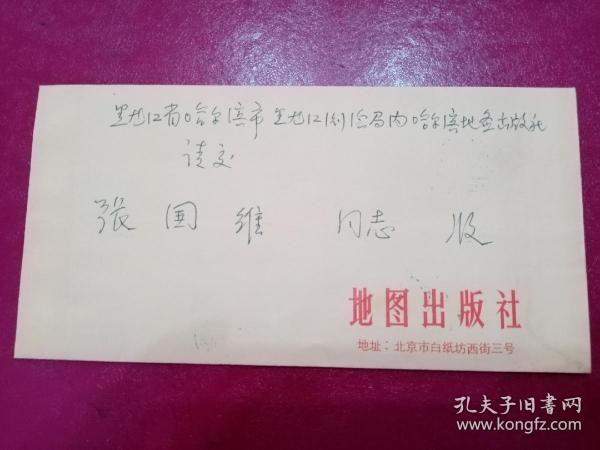 黑龙江省哈尔滨市黑龙江测绘局内哈尔滨地图出版社
请交
张国维 同志 收
地图出版社
地址：北京市白纸坊西街三号
孔夫子旧书网
www.kongfz.com